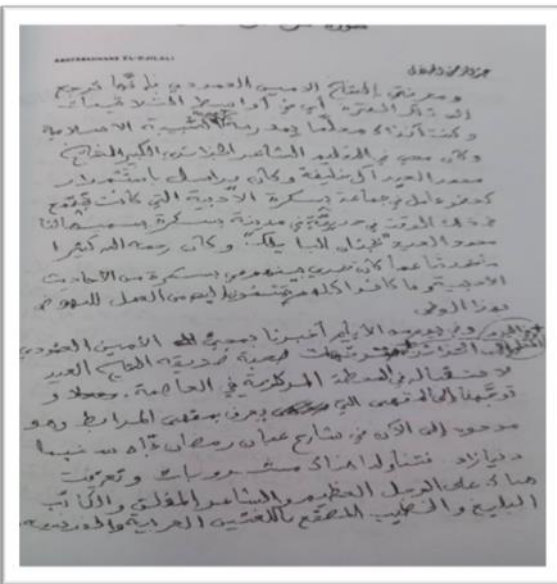 ABDERRAHMANE EL-DJILALI
عبد الرحمن الجيلالي
ومعرفتي بالشيخ الامين العمودي فإنها ترجع
إلى تلك الفترة أي من أواسط الثلاثينات
وكنت آنذاك معلما بمدرسة الشبيبة الاسلامية
وكان معي في التعليم الشاعر الجزائري الكبير الشيخ
محمد العيد آل خليفة وكان يراسل باستمرار
كعضو عامل في جماعة بسكرة الأدبية التي كانت تجتمع
في ذلك الوقت في مدينة بسكرة
محمد العيد وكان رحمه الله كثيرا
ما يحدثنا عما كان يجري بينهم في بسكرة من الأحاديث
الأدبية وما كانوا كلهم من العمل للنهوض
بهذا الوطن
وفي يوم من الأيام أخبرنا بمجيء الأمين العمودي
إلى صحبة صديقه الشيخ العيد
لاستقباله في المحطة المركزية في العاصمة. وفعلا و
توجهنا إلى المقهى التي يعرف بمقهى المرابط وهو
موجود إلى الآن في شارع عبان رمضان
فتناولنا هناك مشروبات وتعرفت
هناك على الرجل العظيم والشاعر المفلق والكاتب
البليغ والخطيب المصقع باللغتين العربية والفرنسية.